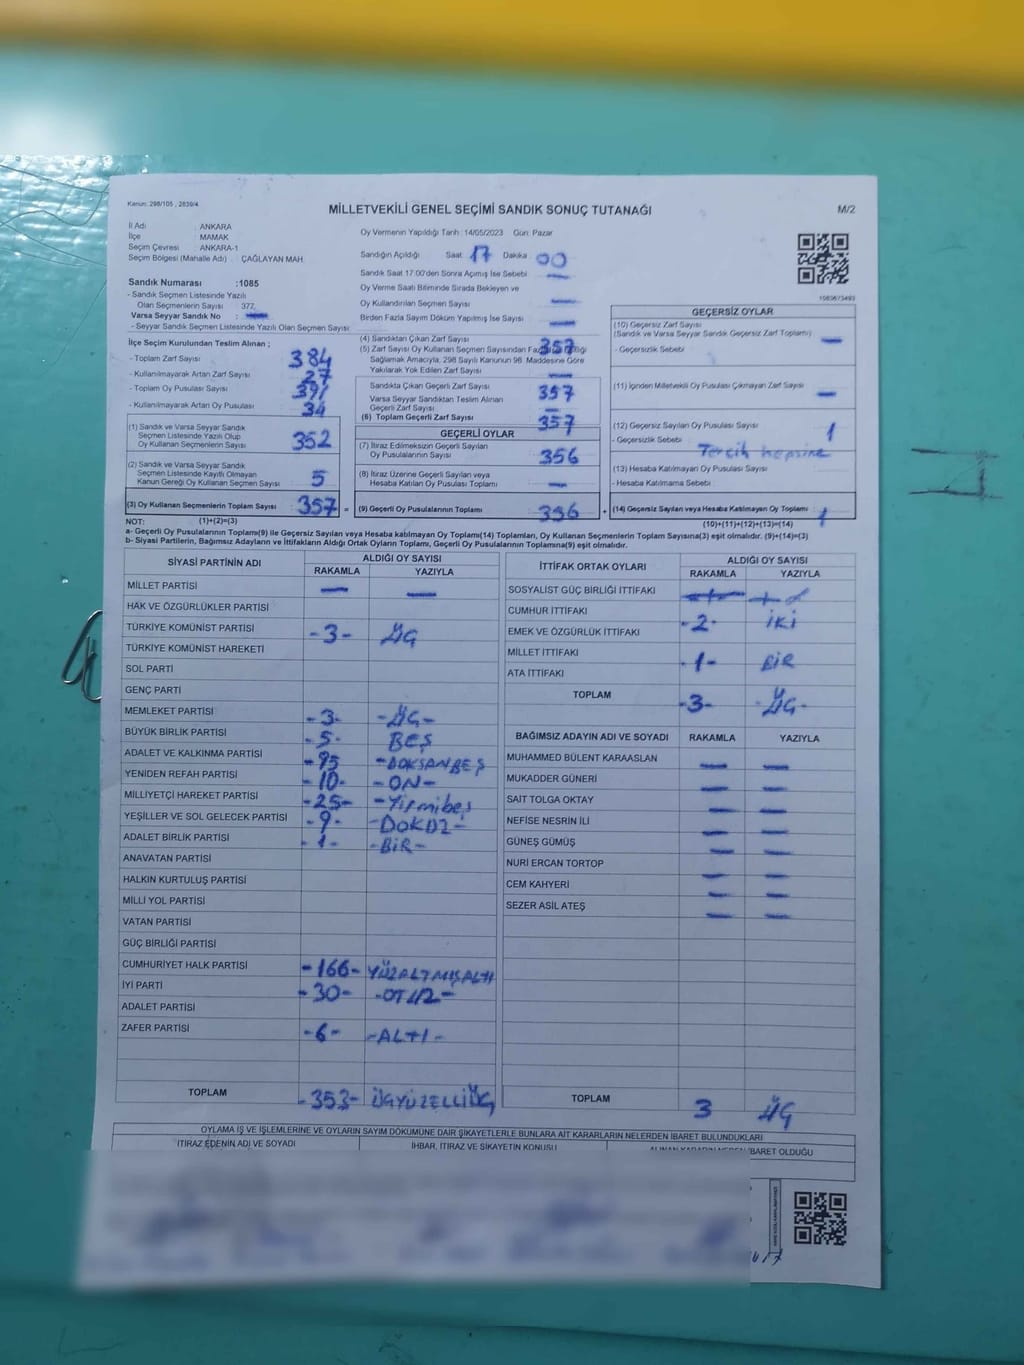 Kanun: 298/105 , 2839/4
MİLLETVEKİLİ GENEL SEÇİMİ SANDIK SONUÇ TUTANAĞI
M/2
İl Adı : ANKARA
İlçe : MAMAK
Seçim Çevresi : ANKARA-1
Seçim Bölgesi (Mahalle Adı) : ÇAĞLAYAN MAH.
Sandık Numarası :1085
- Sandık Seçmen Listesinde Yazılı
Olan Seçmenlerin Sayısı : 377
Varsa Seyyar Sandık No : —
- Seyyar Sandık Seçmen Listesinde Yazılı Olan Seçmen Sayısı:
Oy Vermenin Yapıldığı Tarih :14/05/2023 Gün: Pazar
Sandığın Açıldığı Saat 17 Dakika 00
Sandık Saat 17.00'den Sonra Açımış İse Sebebi —
Oy Verme Saati Bitiminde Sırada Bekleyen ve
Oy Kullandırılan Seçmen Sayısı —
Birden Fazla Sayım Döküm Yapılmış İse Sayısı —
1083673493
İlçe Seçim Kurulundan Teslim Alınan ;
- Toplam Zarf Sayısı : 384
- Kullanılmayarak Artan Zarf Sayısı : 27
- Toplam Oy Pusulası Sayısı : 391
- Kullanılmayarak Artan Oy Pusulası : 34
(1) Sandık ve Varsa Seyyar Sandık
Seçmen Listesinde Yazılı Olup
Oy Kullanan Seçmenlerin Sayısı : 352
(2) Sandık ve Varsa Seyyar Sandık
Seçmen Listesinde Kayıtlı Olmayan
Kanun Gereği Oy Kullanan Seçmen Sayısı : 5
(3) Oy Kullanan Seçmenlerin Toplam Sayısı : 357 =
(4) Sandıktan Çıkan Zarf Sayısı : 357
(5) Zarf Sayısı Oy Kullanan Seçmen Sayısından
Sağlamak Amacıyla, 298 Sayılı Kanunun 98. Maddesine Göre
Yakılarak Yok Edilen Zarf Sayısı
Sandıkta Çıkan Geçerli Zarf Sayısı : 357
Varsa Seyyar Sandıktan Teslim Alınan
Geçerli Zarf Sayısı : —
(6) Toplam Geçerli Zarf Sayısı : 357
GEÇERLİ OYLAR
(7) İtiraz Edilmeksizin Geçerli Sayılan
Oy Pusulalarının Sayısı : 356
(8) İtiraz Üzerine Geçerli Sayılan veya
Hesaba Katılan Oy Pusulası Toplamı : —
(9) Geçerli Oy Pusulalarının Toplamı : 356 +
GEÇERSİZ OYLAR
(10) Geçersiz Zarf Sayısı
(Sandık ve Varsa Seyyar Sandık Geçersiz Zarf Toplamı) : —
- Geçersizlik Sebebi :
(11) İçinden Milletvekili Oy Pusulası Çıkmayan Zarf Sayısı : —
(12) Geçersiz Sayılan Oy Pusulası Sayısı : 1
- Geçersizlik Sebebi : Tercih hepsine
(13) Hesaba Katılmayan Oy Pusulası Sayısı :
- Hesaba Katılmama Sebebi :
(14) Geçersiz Sayılan veya Hesaba Katılmayan Oy Toplamı : 1
NOT: (1)+(2)=(3) (10)+(11)+(12)+(13)=(14)
a- Geçerli Oy Pusulalarının Toplamı(9) ile Geçersiz Sayılan veya Hesaba katılmayan Oy Toplamı(14) Toplamları, Oy Kullanan Seçmenlerin Toplam Sayısına(3) eşit olmalıdır. (9)+(14)=(3)
b- Siyasi Partilerin, Bağımsız Adayların ve İttifakların Aldığı Ortak Oyların Toplamı, Geçerli Oy Pusulalarının Toplamına(9) eşit olmalıdır.
SİYASİ PARTİNİN ADI ALDIĞI OY SAYISI
RAKAMLA YAZIYLA
MİLLET PARTİSİ — —
HAK VE ÖZGÜRLÜKLER PARTİSİ
TÜRKİYE KOMÜNİST PARTİSİ -3- ÜÇ
TÜRKİYE KOMÜNİST HAREKETİ
SOL PARTİ
GENÇ PARTİ
MEMLEKET PARTİSİ -3- -ÜÇ-
BÜYÜK BİRLİK PARTİSİ -5- BEŞ
ADALET VE KALKINMA PARTİSİ -95 -DOKSANBEŞ
YENİDEN REFAH PARTİSİ -10- -ON-
MİLLİYETÇİ HAREKET PARTİSİ -25- -Yirmibeş
YEŞİLLER VE SOL GELECEK PARTİSİ -9- -DOKUZ-
ADALET BİRLİK PARTİSİ -1- -BİR-
ANAVATAN PARTİSİ
HALKIN KURTULUŞ PARTİSİ
MİLLİ YOL PARTİSİ
VATAN PARTİSİ
GÜÇ BİRLİĞİ PARTİSİ
CUMHURİYET HALK PARTİSİ -166- YÜZALTMIŞALTI
İYİ PARTİ -30- -OTUZ-
ADALET PARTİSİ
ZAFER PARTİSİ -6- -ALTI-
TOPLAM -353- ÜÇYÜZELLİÜÇ
İTTİFAK ORTAK OYLARI ALDIĞI OY SAYISI
RAKAMLA YAZIYLA
SOSYALİST GÜÇ BİRLİĞİ İTTİFAKI
CUMHUR İTTİFAKI -2- İKİ
EMEK VE ÖZGÜRLÜK İTTİFAKI
MİLLET İTTİFAKI -1- BİR
ATA İTTİFAKI
TOPLAM -3- -ÜÇ-
BAĞIMSIZ ADAYIN ADI VE SOYADI RAKAMLA YAZIYLA
MUHAMMED BÜLENT KARAASLAN — —
MUKADDER GÜNERİ — —
SAİT TOLGA OKTAY — —
NEFİSE NESRİN İLİ — —
GÜNEŞ GÜMÜŞ — —
NURİ ERCAN TORTOP — —
CEM KAHYERİ — —
SEZER ASİL ATEŞ — —
TOPLAM 3 ÜÇ
OYLAMA İŞ VE İŞLEMLERİNE VE OYLARIN SAYIM DÖKÜMÜNE DAİR ŞİKAYETLERLE BUNLARA AİT KARARLARIN NELERDEN İBARET BULUNDUKLARI
İTİRAZ EDENİN ADI VE SOYADI İHBAR, İTİRAZ VE ŞİKAYETİN KONUSU ALINAN KARARIN NEDEN İBARET OLDUĞU